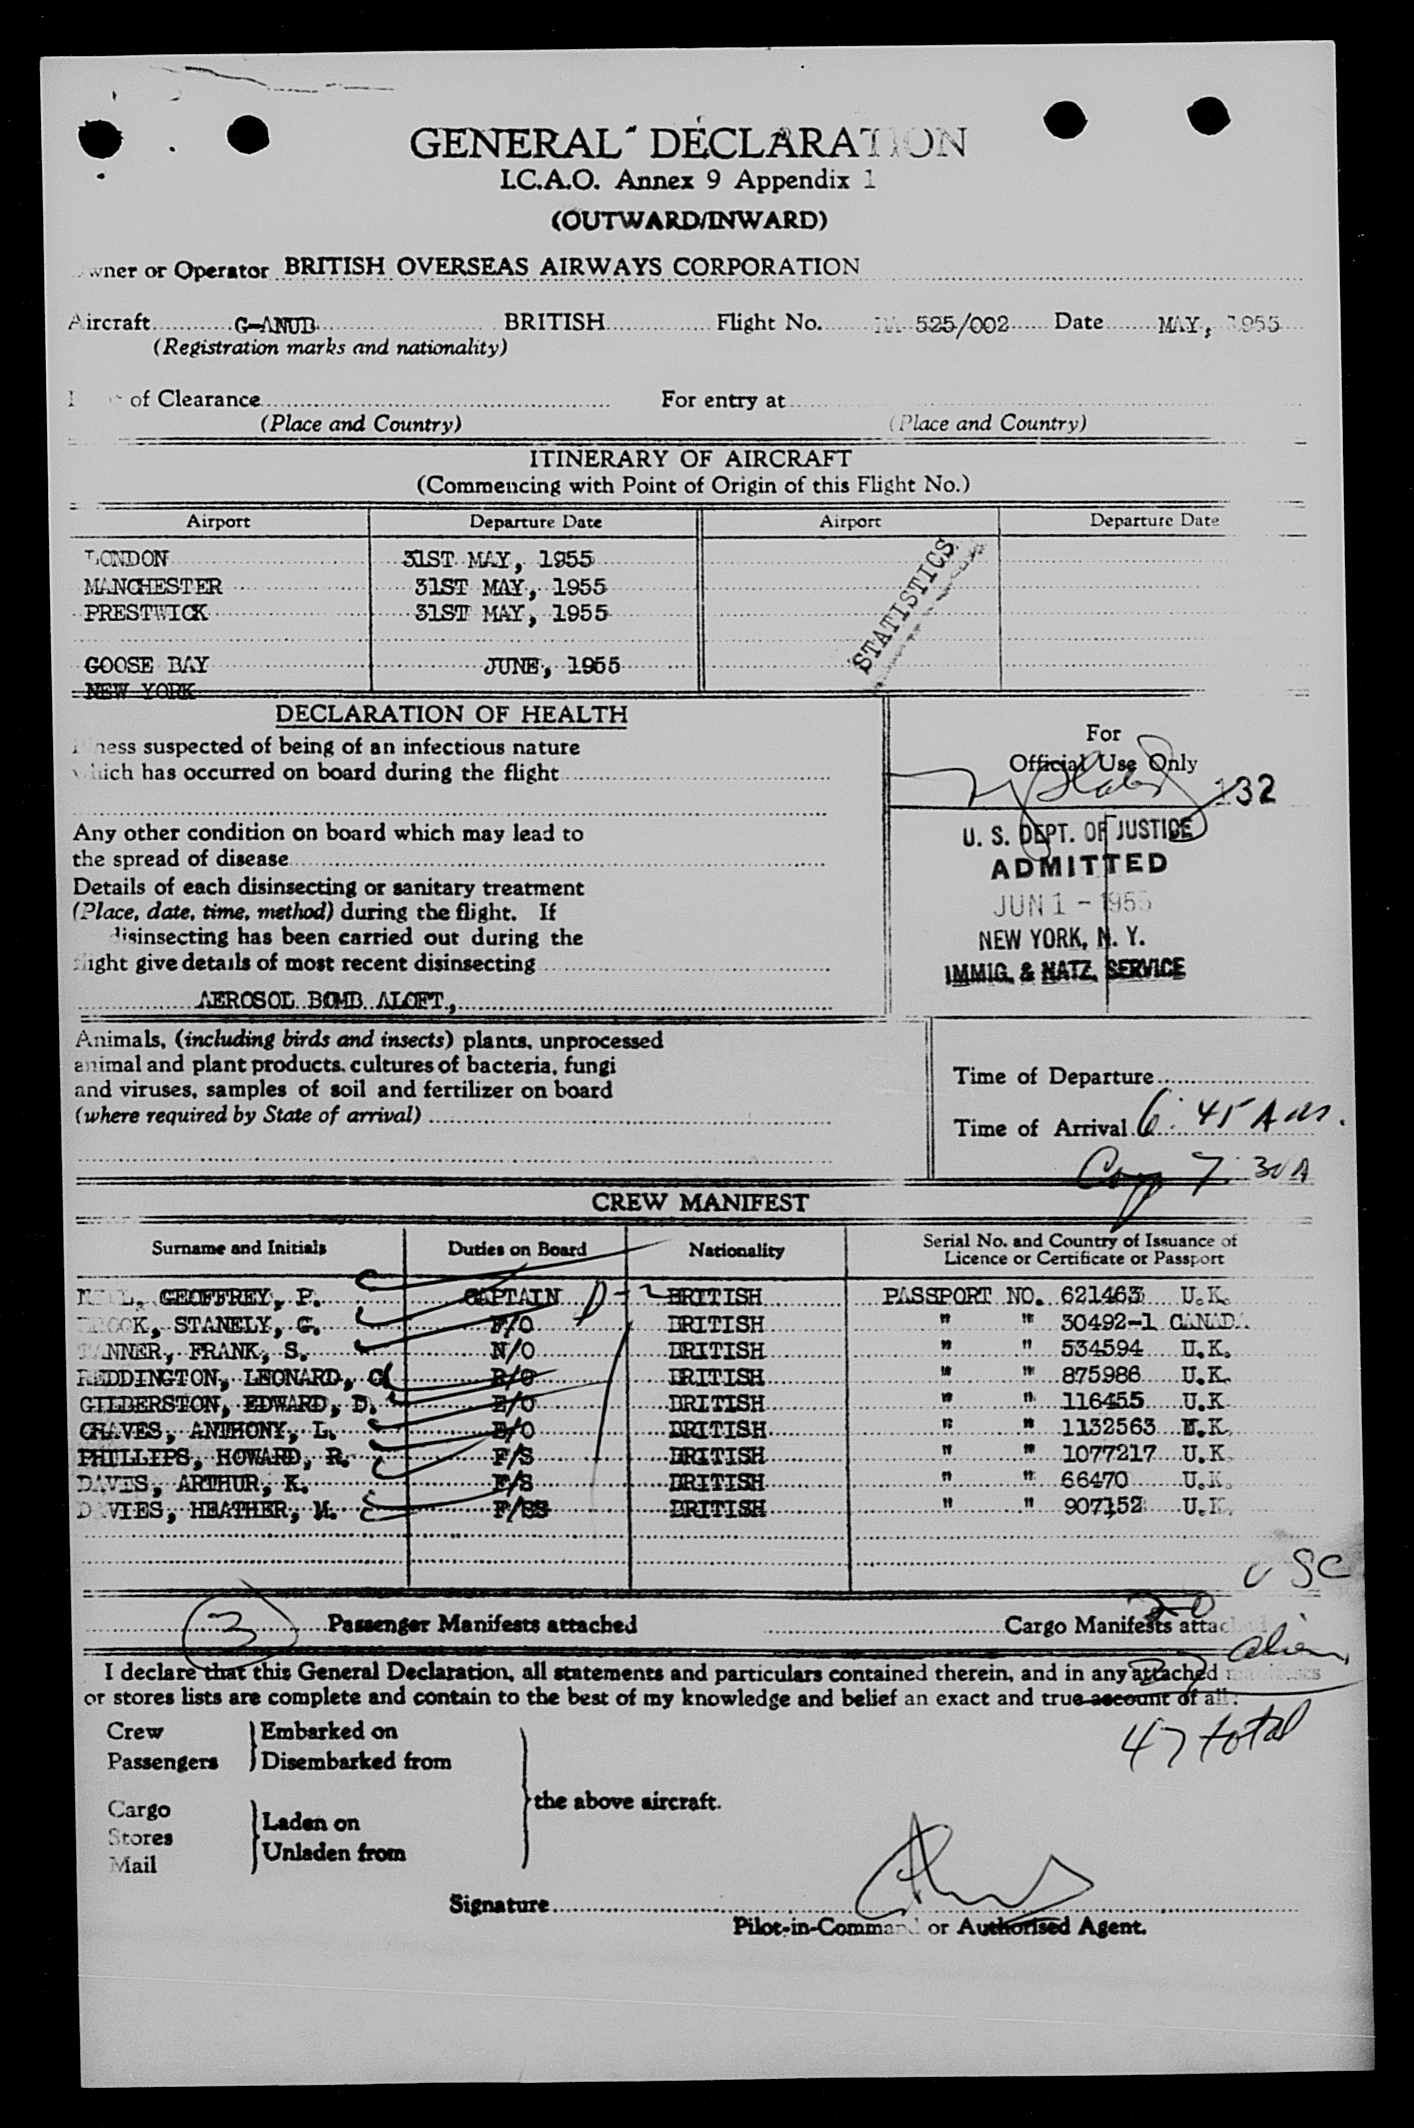 GENERAL DECLARATION
I.C.A.O. Annex 9 Appendix 1
(OUTWARD/INWARD)
wner or Operator BRITISH OVERSEAS AIRWAYS CORPORATION
Aircraft G-ANUB BRITISH Flight No. BA 525/002 Date MAY, 1955
(Registration marks and nationality)
of Clearance For entry at
(Place and Country) (Place and Country)
ITINERARY OF AIRCRAFT
(Commencing with Point of Origin of this Flight No.)
Airport Departure Date Airport Departure Date
LONDON 31ST MAY, 1955
MANCHESTER 31ST MAY, 1955
PRESTWICK 31ST MAY, 1955
STATISTICS
GOOSE BAY JUNE, 1955
NEW YORK
DECLARATION OF HEALTH
Illness suspected of being of an infectious nature
which has occurred on board during the flight
Any other condition on board which may lead to
the spread of disease
Details of each disinsecting or sanitary treatment
(Place, date, time, method) during the flight. If
disinsecting has been carried out during the
flight give details of most recent disinsecting
AEROSOL BOMB ALOFT,
For
Official Use Only
132
U. S. DEPT. OF JUSTICE
ADMITTED
JUN 1 - 1955
NEW YORK, N. Y.
IMMIG. & NATZ. SERVICE
Animals, (including birds and insects) plants, unprocessed
animal and plant products, cultures of bacteria, fungi
and viruses, samples of soil and fertilizer on board
(where required by State of arrival)
Time of Departure
Time of Arrival 6:45 AM.
7:30 A
CREW MANIFEST
Surname and Initials Duties on Board Nationality Serial No. and Country of Issuance of
Licence or Certificate or Passport
GEOFFREY, P. CAPTAIN BRITISH PASSPORT NO. 621463 U.K.
STANELY, G. F/O BRITISH " " 30492-1 CANADA
TANNER, FRANK, S. N/O BRITISH " " 534594 U.K.
REDDINGTON, LEONARD, C. R/O BRITISH " " 875986 U.K.
GILDERSTON, EDWARD, D. E/O BRITISH " " 116455 U.K
CHAVES, ANTHONY, L. E/O BRITISH " " 1132563 U.K.
PHILLIPS, HOWARD, R. F/S BRITISH " " 1077217 U.K.
DAVIS, ARTHUR, K. F/S BRITISH " " 66470 U.K.
DAVIES, HEATHER, M. F/SS BRITISH " " 907152 U.K.
USC
3 Passenger Manifests attached Cargo Manifests attached
20
alien
27
I declare that this General Declaration, all statements and particulars contained therein, and in any attached manifests
or stores lists are complete and contain to the best of my knowledge and belief an exact and true account of all:
47 total
Crew Embarked on
Passengers Disembarked from
the above aircraft.
Cargo Laden on
Stores
Unladen from
Mail
Signature
Pilot-in-Command or Authorised Agent.